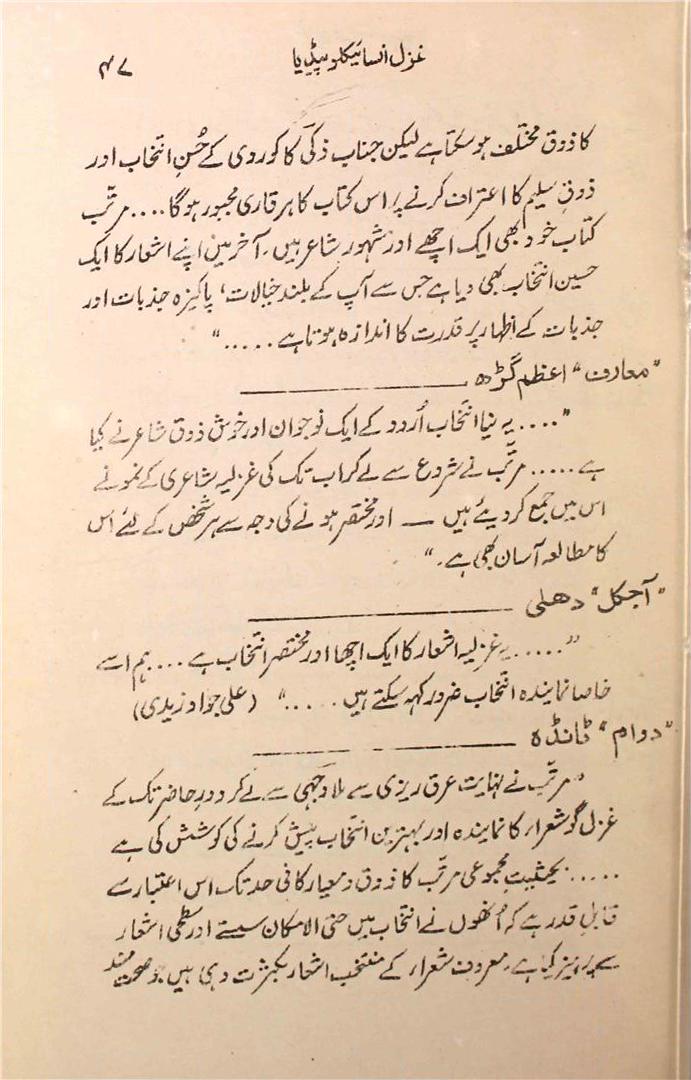 غزل انسائیکلوپیڈیا
۴۷
کا ذوق مختلف ہوسکتا ہے لیکن جناب ذکی کاکوروی کے حُسنِ انتخاب اور
ذوقِ سلیم کا اعتراف کرنے پر اس کتاب کا ہر قاری مجبور ہوگا .... مرتّب
کتاب خود بھی ایک اچھے اور مشہور شاعر ہیں۔ آخر میں اپنے اشعار کا ایک
حسین انتخاب بھی دیا ہے جس سے آپ کے بلند خیالات، پاکیزہ جذبات اور
جذبات کے اظہار پر قدرت کا اندازہ ہوتا ہے ....."
"معارف" اعظم گڑھ
".... یہ نیا انتخاب اُردو کے ایک نوجوان اور خوش ذوق شاعر نے کیا
ہے ..... مرتّب نے شروع سے لے کر اب تک کی غزلیہ شاعری کے نمونے
اس میں جمع کر دیئے ہیں — اور مختصر ہونے کی وجہ سے ہر شخص کے لئے اس
کا مطالعہ آسان بھی ہے۔"
"آجکل" دھلی
"..... یہ غزلیہ اشعار کا ایک اچھا اور مختصر انتخاب ہے .... ہم اسے
خاصا نمایندہ انتخاب ضرور کہہ سکتے ہیں ....." (علی جواد زیدی)
"دوام" ٹانڈہ
"مرتّب نے نہایت عرق ریزی سے ملا وجہی سے لے کر دورِ حاضر تک کے
غزل گو شعراء کا نمایندہ اور بہترین انتخاب پیش کرنے کی کوشش کی ہے
..... بحیثیتِ مجموعی مرتّب کا ذوق و معیار کافی حد تک اس اعتبار سے
قابلِ قدر ہے کہ اُنھوں نے انتخاب میں حتی الامکان سستے اور سطحی اشعار
سے پرہیز کیا ہے۔ معروف شعراء کے منتخب اشعار بکثرت وہی ہیں جو صحت مند